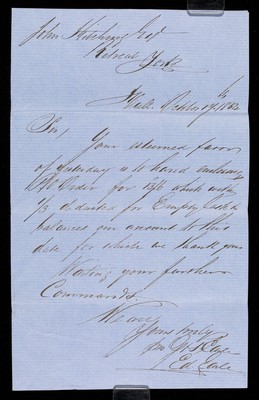 John Kitching Esqr
Retreat York
Hull October 19th / 1862
Sir/
Your esteemed favor
of yesterday is to hand enclosing
P.O Order for 13/6 which with
1/3 deducted for Empty
balances your account to this
date for which we thank you
Waiting your further
Commands
We are
Yours